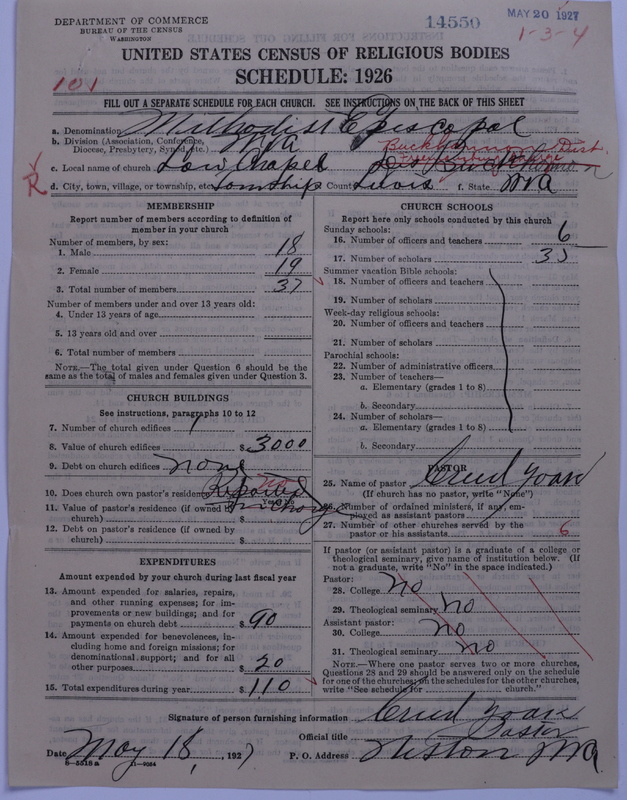 DEPARTMENT OF COMMERCE
BUREAU OF THE CENSUS
WASHINGTON
14550
MAY 20 1927
1-3-4
UNITED STATES CENSUS OF RELIGIOUS BODIES
SCHEDULE: 1926
101
FILL OUT A SEPARATE SCHEDULE FOR EACH CHURCH. SEE INSTRUCTIONS ON THE BACK OF THIS SHEET
a. Denomination Methodist Episcopal
b. Division (Association, Conference, Diocese, Presbytery, Synod, etc.) WVa Buckhannon Dist.
c. Local name of church Low Chapel
R
d. City, town, village, or township, etc. township County Lewis f. State WVa
MEMBERSHIP
Report number of members according to definition of
member in your church
Number of members, by sex:
1. Male 18
2. Female 19
3. Total number of members 37
Number of members under and over 13 years old:
4. Under 13 years of age
5. 13 years old and over
6. Total number of members
NOTE.—The total given under Question 6 should be
same as the total of males and females given under Question 3.
CHURCH BUILDINGS
See instructions, paragraphs 10 to 12
7. Number of church edifices 1
8. Value of church edifices $ 3000
9. Debt on church edifices none
10. Does church own pastor's residence No
Yes or No
Reported
11. Value of pastor's residence (if owned by
church) $
12. Debt on pastor's residence (if owned by
church) $
EXPENDITURES
Amount expended by your church during last fiscal year
13. Amount expended for salaries, repairs,
and other running expenses; for im-
provements or new buildings; and for
payments on church debt $ 90
14. Amount expended for benevolences, in-
cluding home and foreign missions; for
denominational support; and for all
other purposes $ 20
15. Total expenditures during year $ 110
CHURCH SCHOOLS
Report here only schools conducted by this church
Sunday schools:
16. Number of officers and teachers 6
17. Number of scholars 35
Summer vacation Bible schools:
18. Number of officers and teachers
19. Number of scholars
Week-day religious schools:
20. Number of officers and teachers
21. Number of scholars
Parochial schools:
22. Number of administrative officers
23. Number of teachers—
a. Elementary (grades 1 to 8)
b. Secondary
24. Number of scholars—
a. Elementary (grades 1 to 8)
b. Secondary
PASTOR
25. Name of pastor
(If church has no pastor, write "None")
26. Number of ordained ministers, if any, em-
ployed as assistant pastors
27. Number of other churches served by the
pastor or his assistants 6
If pastor (or assistant pastor) is a graduate of a college or
theological seminary, give name of institution below. (If
not a graduate, write "No" in the space indicated.)
Pastor:
28. College No
29. Theological seminary No
Assistant pastor:
30. College No
31. Theological seminary No
NOTE.—Where one pastor serves two or more churches,
Questions 28 and 29 should be answered only on the schedule
for one of the churches; on the schedules for the other churches,
write "See schedule for church."
Signature of person furnishing information
Official title Pastor
Date May 18, 1927
P. O. Address WVa
8—5518a 11—9054